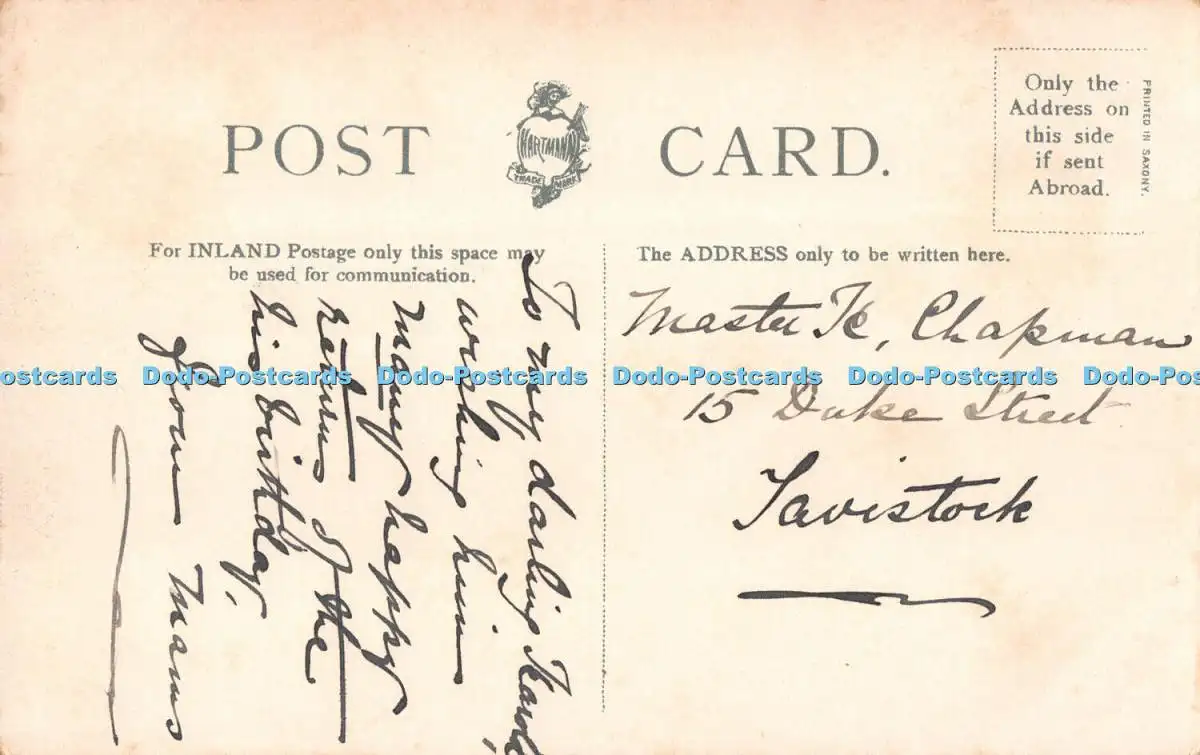 POST CARD.
HARTMANN
TRADE MARK
Only the
Address on
this side
if sent
Abroad.
PRINTED IN SAXONY.
For INLAND Postage only this space may
be used for communication.
The ADDRESS only to be written here.
To my darling
wishing him
many happy
returns of the
his birthday,
from Mams
Master K, Chapman
15 Duke Street
Tavistock
Dodo-Postcards Dodo-Postcards Dodo-Postcards Dodo-Postcards Dodo-Postcards Dodo-Postcards